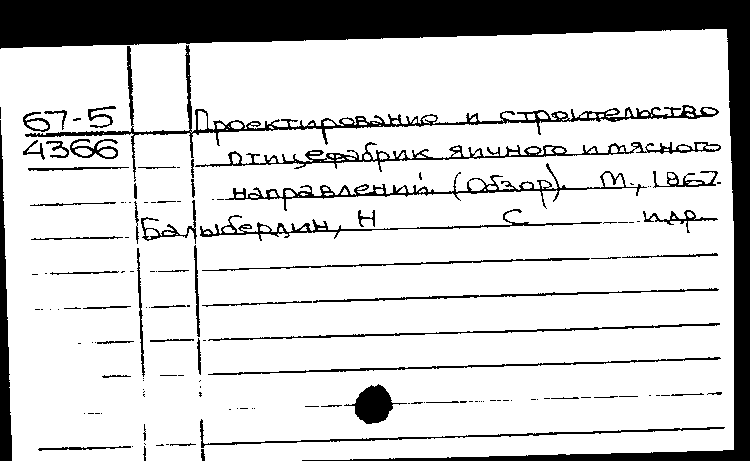 67-5 Проектирование и строительство
4366 птицефабрик яичного и мясного
направлений. (Обзор). М., 1967.
Балыбердин, Н С и др